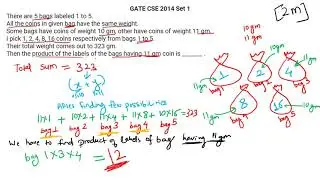 GATE CSE 2014 Set 1
[2m]
There are 5 bags labeled 1 to 5.
All the coins in given bag have the same weight.
Some bags have coins of weight 10 gm, other have coins of weight 11 gm.
I pick 1, 2, 4, 8, 16 coins respectively from bags 1 to 5
Their total weight comes out to 323 gm.
Then the product of the labels of the bags having 11 gm coin is ______ .
10gm
or
11gm
1
2
4
8
16
Total sum = 323
(x + y)
After finding few possibilities
11×1 + 10×2 + 11×4 + 11×8 + 10×16 = 323
bag1 bag2 bag 3 bag 4 bag 5
We have to find product of labels of bag having 11gm
bag 1×3×4 = 12